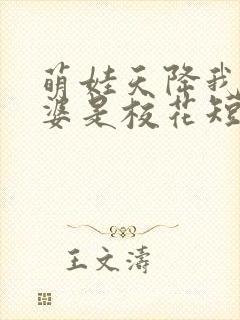 萌娃天降我
婆是校花短
王文濤